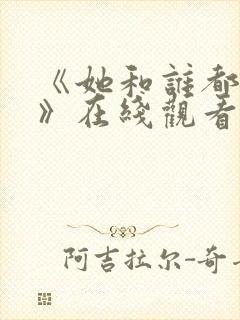 《她和誰都
》在綫觀看
阿吉拉尔-奇